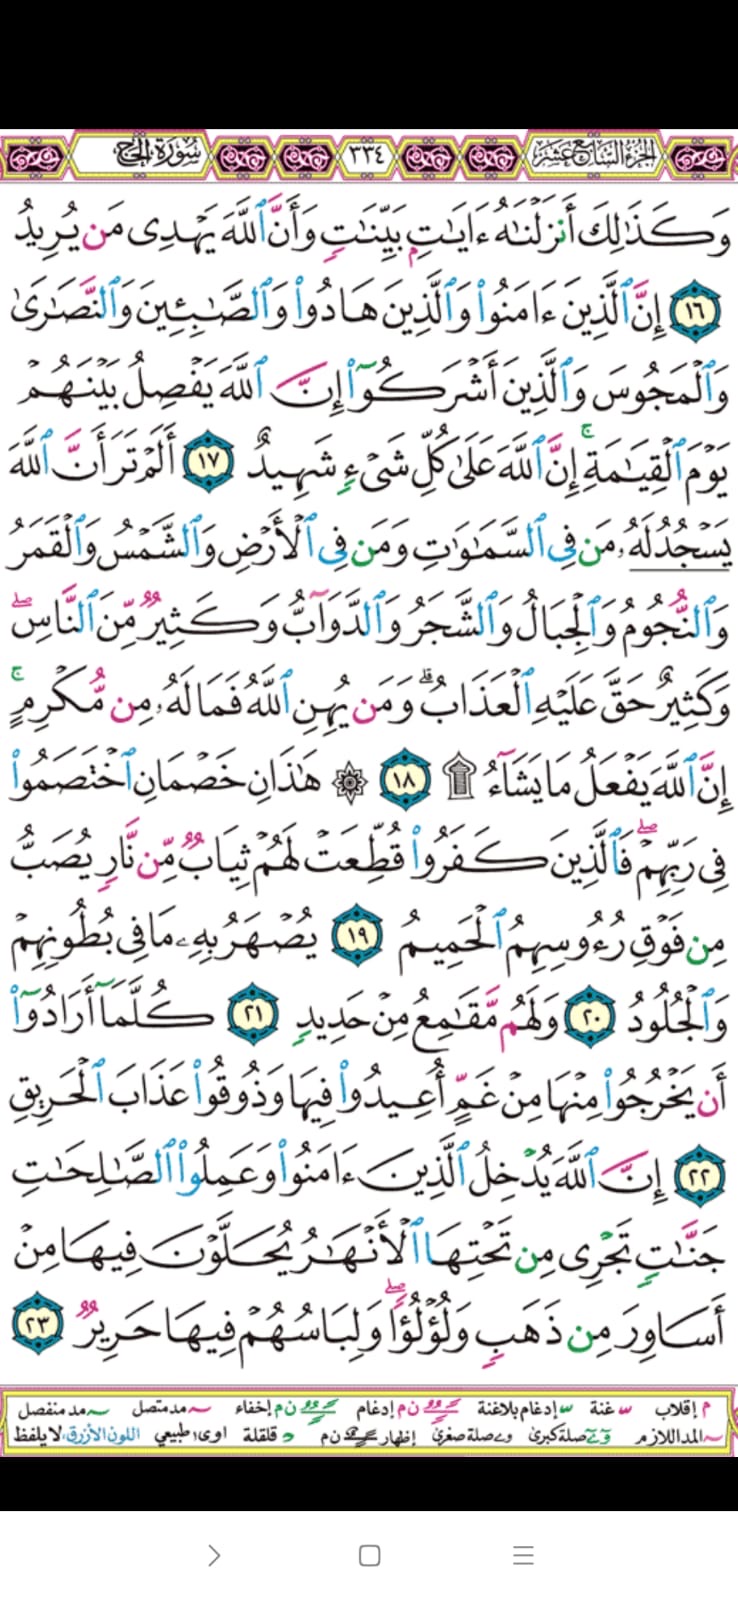 الجزء السابع عشر ٣٣٤ سورة الحج
وَكَذَٰلِكَ أَنزَلْنَٰهُ ءَايَٰتٍۭ بَيِّنَٰتٍ وَأَنَّ ٱللَّهَ يَهْدِى مَن يُرِيدُ
١٦ إِنَّ ٱلَّذِينَ ءَامَنُوا۟ وَٱلَّذِينَ هَادُوا۟ وَٱلصَّٰبِـِٔينَ وَٱلنَّصَٰرَىٰ
وَٱلْمَجُوسَ وَٱلَّذِينَ أَشْرَكُوٓا۟ إِنَّ ٱللَّهَ يَفْصِلُ بَيْنَهُمْ
يَوْمَ ٱلْقِيَٰمَةِ ۚ إِنَّ ٱللَّهَ عَلَىٰ كُلِّ شَىْءٍ شَهِيدٌ ١٧ أَلَمْ تَرَ أَنَّ ٱللَّهَ
يَسْجُدُ لَهُۥ مَن فِى ٱلسَّمَٰوَٰتِ وَمَن فِى ٱلْأَرْضِ وَٱلشَّمْسُ وَٱلْقَمَرُ
وَٱلنُّجُومُ وَٱلْجِبَالُ وَٱلشَّجَرُ وَٱلدَّوَآبُّ وَكَثِيرٌ مِّنَ ٱلنَّاسِ ۖ
وَكَثِيرٌ حَقَّ عَلَيْهِ ٱلْعَذَابُ ۗ وَمَن يُهِنِ ٱللَّهُ فَمَا لَهُۥ مِن مُّكْرِمٍ ۚ
إِنَّ ٱللَّهَ يَفْعَلُ مَا يَشَآءُ ۩ ١٨ ۞ هَٰذَانِ خَصْمَانِ ٱخْتَصَمُوا۟
فِى رَبِّهِمْ ۖ فَٱلَّذِينَ كَفَرُوا۟ قُطِّعَتْ لَهُمْ ثِيَابٌ مِّن نَّارٍ يُصَبُّ
مِن فَوْقِ رُءُوسِهِمُ ٱلْحَمِيمُ ١٩ يُصْهَرُ بِهِۦ مَا فِى بُطُونِهِمْ
وَٱلْجُلُودُ ٢٠ وَلَهُم مَّقَٰمِعُ مِنْ حَدِيدٍ ٢١ كُلَّمَآ أَرَادُوٓا۟
أَن يَخْرُجُوا۟ مِنْهَا مِنْ غَمٍّ أُعِيدُوا۟ فِيهَا وَذُوقُوا۟ عَذَابَ ٱلْحَرِيقِ
٢٢ إِنَّ ٱللَّهَ يُدْخِلُ ٱلَّذِينَ ءَامَنُوا۟ وَعَمِلُوا۟ ٱلصَّٰلِحَٰتِ
جَنَّٰتٍ تَجْرِى مِن تَحْتِهَا ٱلْأَنْهَٰرُ يُحَلَّوْنَ فِيهَا مِنْ
أَسَاوِرَ مِن ذَهَبٍ وَلُؤْلُؤًا ۖ وَلِبَاسُهُمْ فِيهَا حَرِيرٌ ٢٣
م إقلاب غنة إدغام بلاغنة ن م إدغام ن م إخفاء مد متصل مد منفصل
المد اللازم صلة كبرى صلة صغرى إظهار ن م قلقلة اوى: طبيعي اللون الأزرق: لا يلفظ